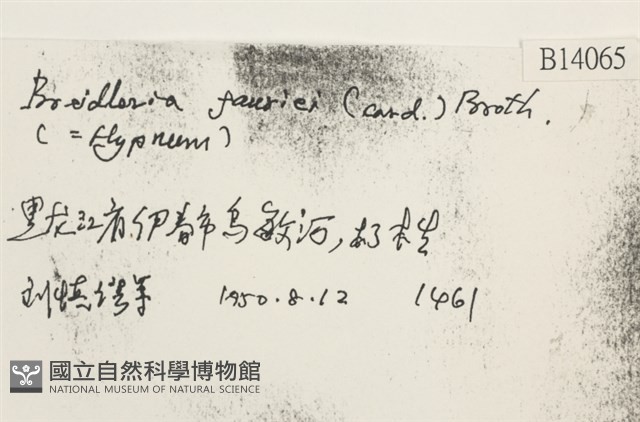 B14065
Breidleria fauriei (Card.) Broth.
(=Hypnum)
黑龙江省伊春市乌敏河,朽木生
刘慎谔等 1950.8.12 1461
國立自然科學博物館
NATIONAL MUSEUM OF NATURAL SCIENCE